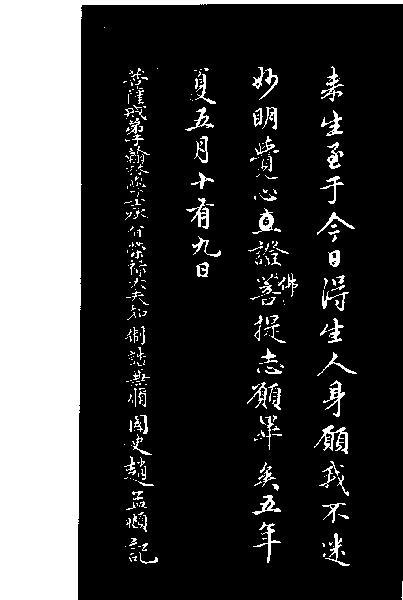 来生至于今日得生人身願我不迷
妙明覺心直證佛菩提志願畢矣五年
夏五月十有九日
菩薩戒弟子翰林學士承旨榮祿大夫知制誥兼脩國史趙孟頫記